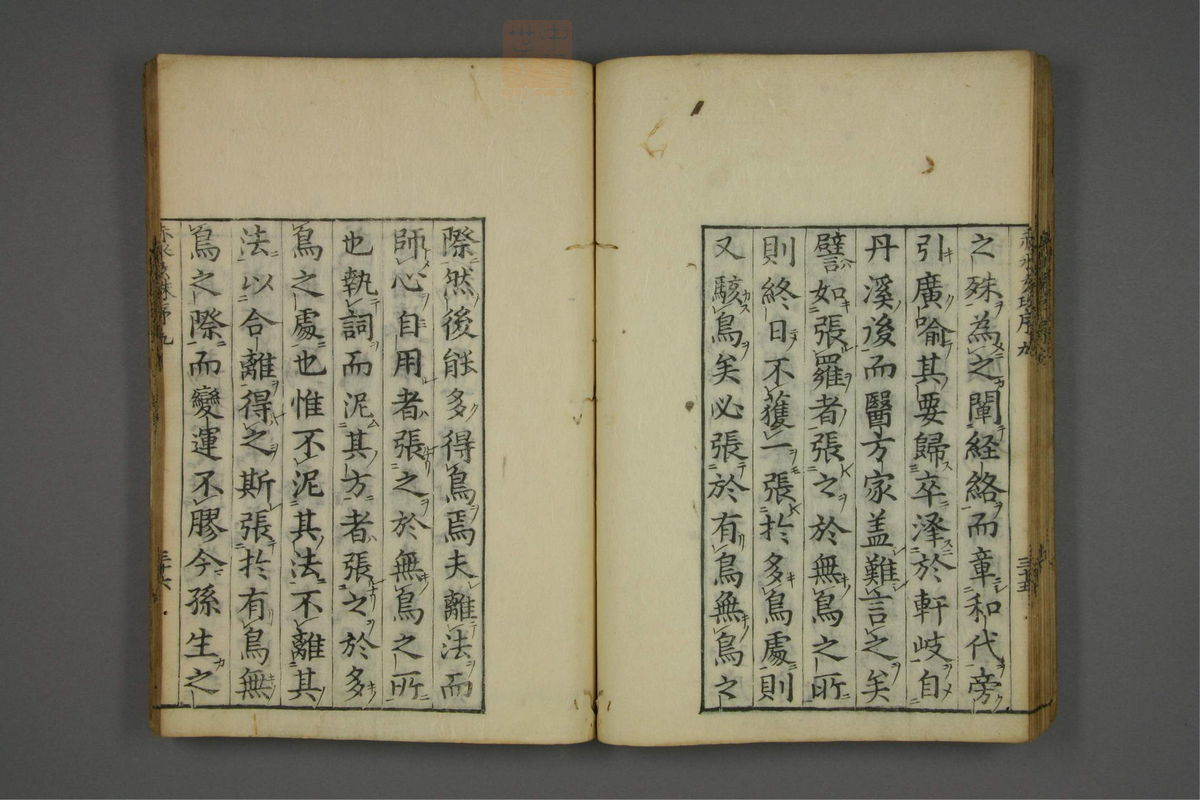 之殊為之闡経絡而章和代旁
引廣喻其要歸卒澤於軒岐自
丹溪後而醫方家盖難言之矣
譬如張羅者張之於無鳥之所
則終日不獲一張扵多鳥處則
又駭鳥矣必張於有鳥無鳥之
際然後能多得鳥焉夫離法而
師心自用者張之於無鳥之所
也執詞而泥其方者張之於多
鳥之處也惟不泥其法不離其
法以合離得之斯張扵有鳥無
鳥之際而變運不膠今孫生之